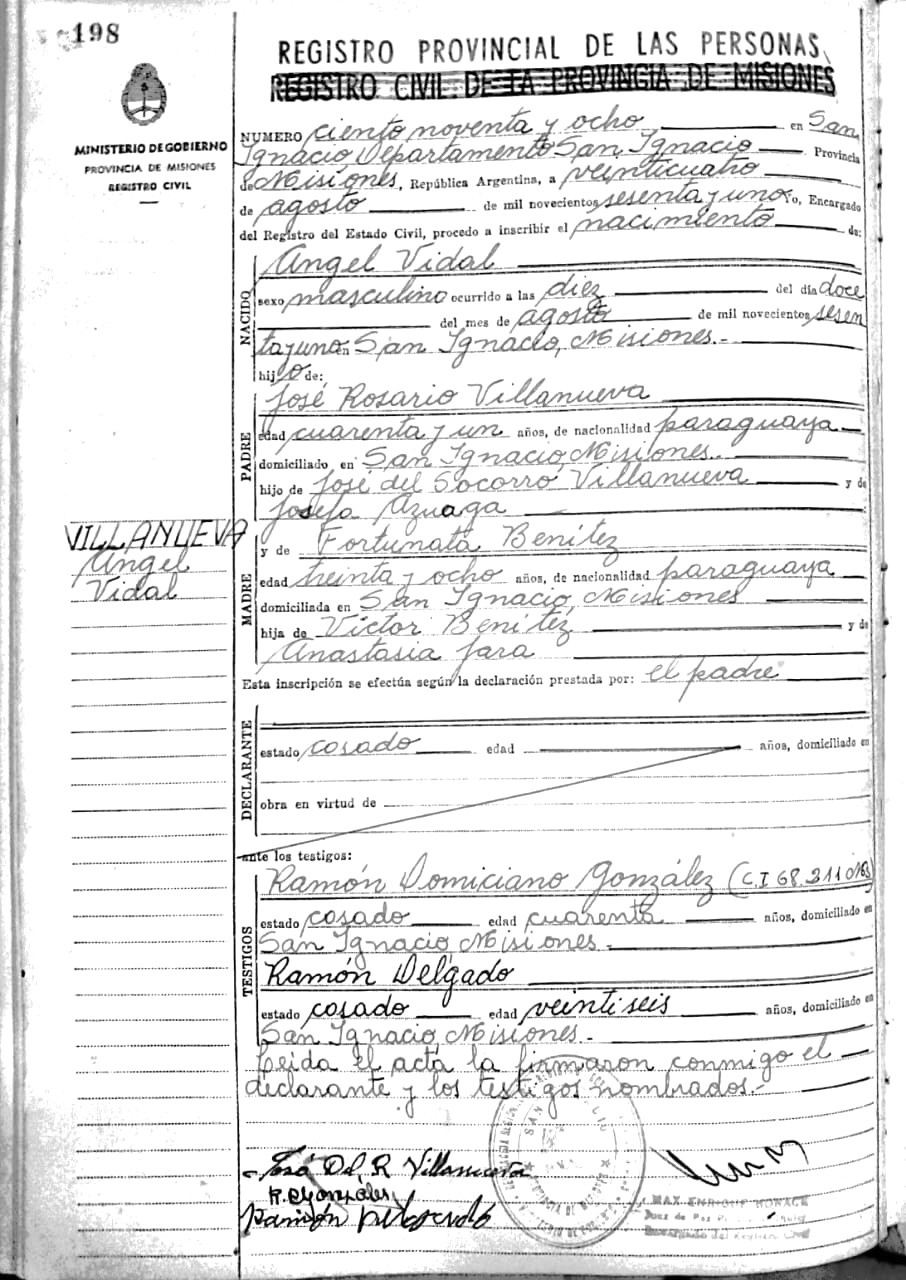 198
MINISTERIO DE GOBIERNO
PROVINCIA DE MISIONES
REGISTRO CIVIL
VILLANUEVA
Angel
Vidal
REGISTRO PROVINCIAL DE LAS PERSONAS
REGISTRO CIVIL DE LA PROVINCIA DE MISIONES
NUMERO ciento noventa y ocho en San
Ignacio Departamento San Ignacio Provincia
de Misiones, República Argentina, a veinticuatro
de agosto de mil novecientos sesenta y uno Yo, Encargado
del Registro del Estado Civil, procedo a inscribir el nacimiento de:
NACIDO
Angel Vidal
sexo masculino ocurrido a las diez del día doce
del mes de agosto de mil novecientos sesen
ta y uno en San Ignacio, Misiones.-
hijo de:
PADRE
José Rosario Villanueva
edad cuarenta y un años, de nacionalidad paraguaya
domiciliado en San Ignacio, Misiones.
hijo de José del Socorro Villanueva y de
Josefa Azuaga
MADRE
y de Fortunata Benítez
edad treinta y ocho años, de nacionalidad paraguaya
domiciliada en San Ignacio, Misiones
hija de Víctor Benítez y de
Anastasia Jara
Esta inscripción se efectúa según la declaración prestada por: el padre
DECLARANTE
estado casado edad años, domiciliado en
obra en virtud de
ante los testigos:
TESTIGOS
Ramón Domiciano González (C.I 68.311
estado casado edad cuarenta años, domiciliado en
San Ignacio, Misiones.-
Ramón Delgado
estado casado edad veintiseis años, domiciliado en
San Ignacio, Misiones.-
Leida el acta la firmaron conmigo el
declarante y los testigos nombrados.-
José Del R Villanueva
R. D González
Ramón Delgado
MAX ENRIQUE
Juez de Paz
Encargado del Registro Civil